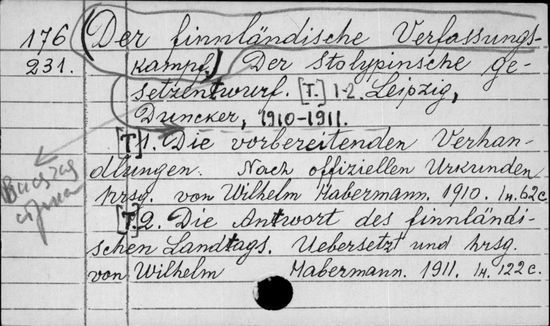 176 (Der finnländische Verfassungs-
231. kampf.) Der Stolypinsche Ge-
setzentwurf. [T.] 1-2. Leipzig,
Duncker, 1910-1911.
[T.] 1. Die vorbereitenden Verhan-
dlungen. Nach offiziellen Urkunden
hrsg. von Wilhelm Habermann. 1910. 1н. 62с.
[T.] 2. Die Antwort des finnländi-
schen Landtags. Uebersetzt und hrsg.
von Wilhelm Habermann. 1911. 1н. 122с.